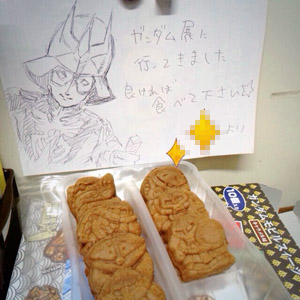 ガンダム展に
行ってきました
良ければ
食べて下さい
より